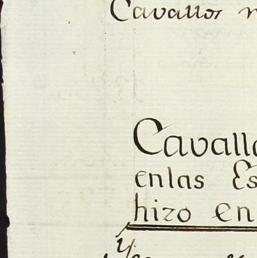 Cavallos
Cavall
en las Es
hizo en
y